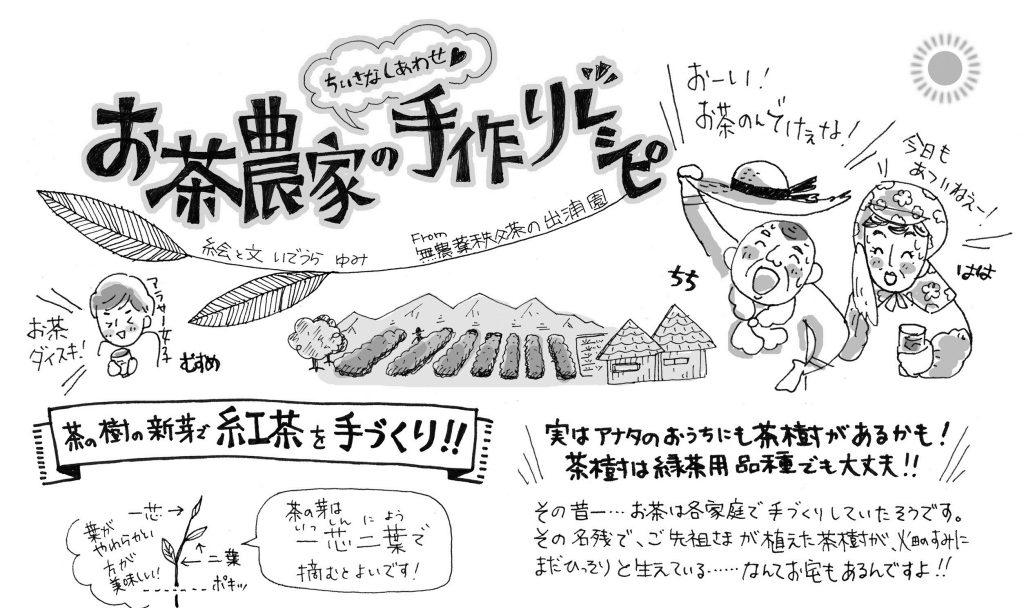 ちいさなしあわせ♥
お茶農家の手作りレシピ
絵と文 いでうら ゆみ
From 無農薬秩父茶の出浦園
おーい!
お茶のんでけぇな!
今日も
あついねぇー!
ちち
はは
お茶
ダイスキ!
アラサー女子
むすめ
茶の樹の新芽で紅茶を手づくり!!
実はアナタのおうちにも茶樹があるかも!
茶樹は緑茶用品種でも大丈夫!!
その昔…お茶は各家庭で手づくりしていたそうです。
その名残で、ご先祖さまが植えた茶樹が、畑のすみに
まだひっそりと生えている……なんてお宅もあるんですよ!!
葉が
やわらかい
方が
美味しい!
一芯→
←二葉
ポキッ
茶の芽は
いっしんによう
一芯二葉で
摘むとよいです!